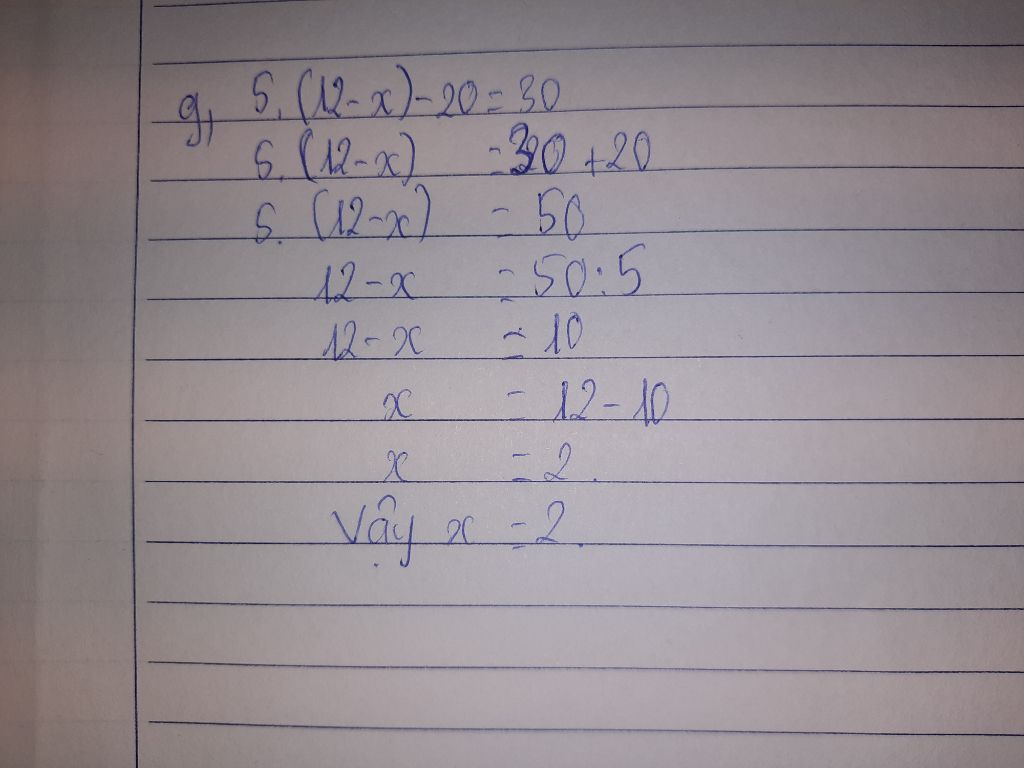 g, 5.(12-x)-20=30
5.(12-x) =30+20
5.(12-x) = 50
12-x = 50:5
12-x = 10
x = 12-10
x = 2.
Vậy x = 2.